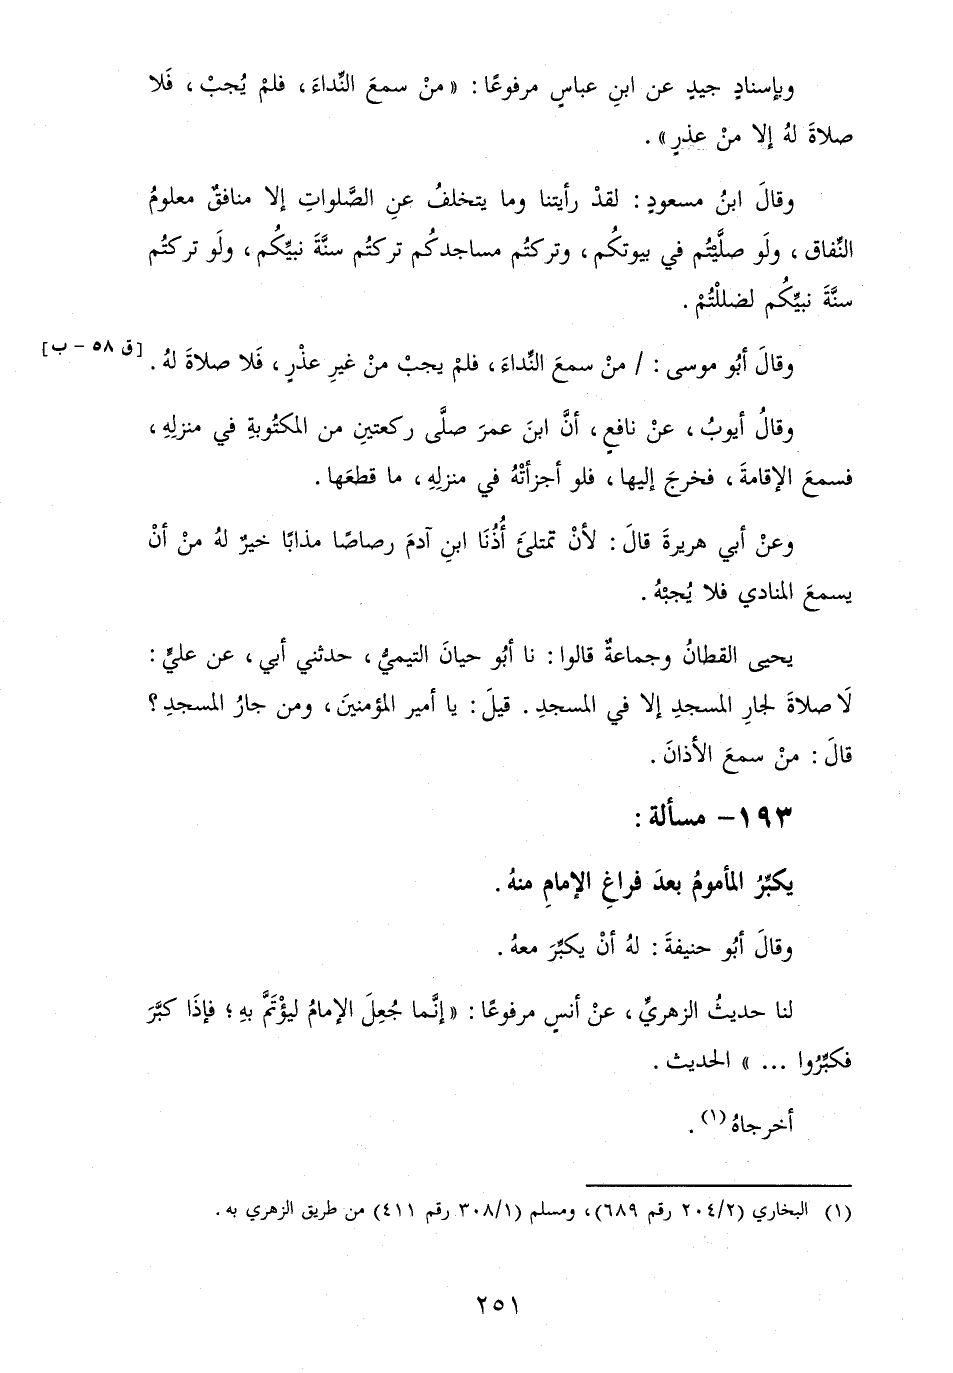 وبإسنادٍ جيدٍ عن ابنِ عباسٍ مرفوعًا : « منْ سمعَ النِّداءَ ، فلمْ يُجبْ ، فَلا
صلاةَ لهُ إلا منْ عذرٍ » .
وقالَ ابنُ مسعودٍ : لقدْ رأيتنا وما يتخلفُ عنِ الصَّلواتِ إلا منافقٌ معلومُ
النِّفاق ، ولَو صلَّيتُم في بيوتكُم ، وتركتُم مساجدكُم تركتُم سنَّةَ نبيِّكُم ، ولَو تركتُم
سنَّةَ نبيِّكُم لضللْتُمْ .
وقالَ أبُو موسى : / منْ سمعَ النِّداءَ ، فلمْ يجبْ منْ غيرِ عذْرٍ ، فَلا صلاةَ لهُ . [ق ٥٨ - ب]
وقالُ أيوبُ ، عنْ نافعٍ ، أنَّ ابنَ عمرَ صلَّى ركعتينِ من المكتُوبةِ في منزلِهِ ،
فسمعَ الإقامةَ ، فخرجَ إليها ، فلو أجزأتْهُ في منزلِهِ ، ما قطعَها .
وعنْ أبي هريرةَ قالَ : لأنْ تمتلئَ أُذُنَا ابنِ آدمَ رصاصًا مذابًا خيرٌ لهُ منْ أنْ
يسمعَ المنادي فلا يُجبْهُ .
يحيى القطانُ وجماعةٌ قالوا : نا أبُو حيانَ التيميُّ ، حدثني أبي ، عن عليٍّ :
لَا صلاةَ لجارِ المسجدِ إلا في المسجدِ . قيلَ : يا أمير المؤمنينَ ، ومن جارُ المسجدِ ؟
قالَ : منْ سمعَ الأذانَ .
١٩٣- مسألة :
يكبِّرُ المأمومُ بعدَ فراغِ الإمامِ منهُ .
وقالَ أبُو حنيفةَ : لهُ أنْ يكبِّرَ معهُ .
لنا حديثُ الزهريِّ ، عنْ أنسٍ مرفوعًا : « إنَّما جُعِلَ الإمامُ ليؤْتَمَّ بهِ ؛ فإذَا كبَّرَ
فكبِّرُوا ... » الحديث .
أخرجاهُ (١) .
(١) البخاري (٢٠٤/٢ رقم ٦٨٩) ، ومسلم (٣٠٨/١ رقم ٤١١) من طريق الزهري به .
٢٥١